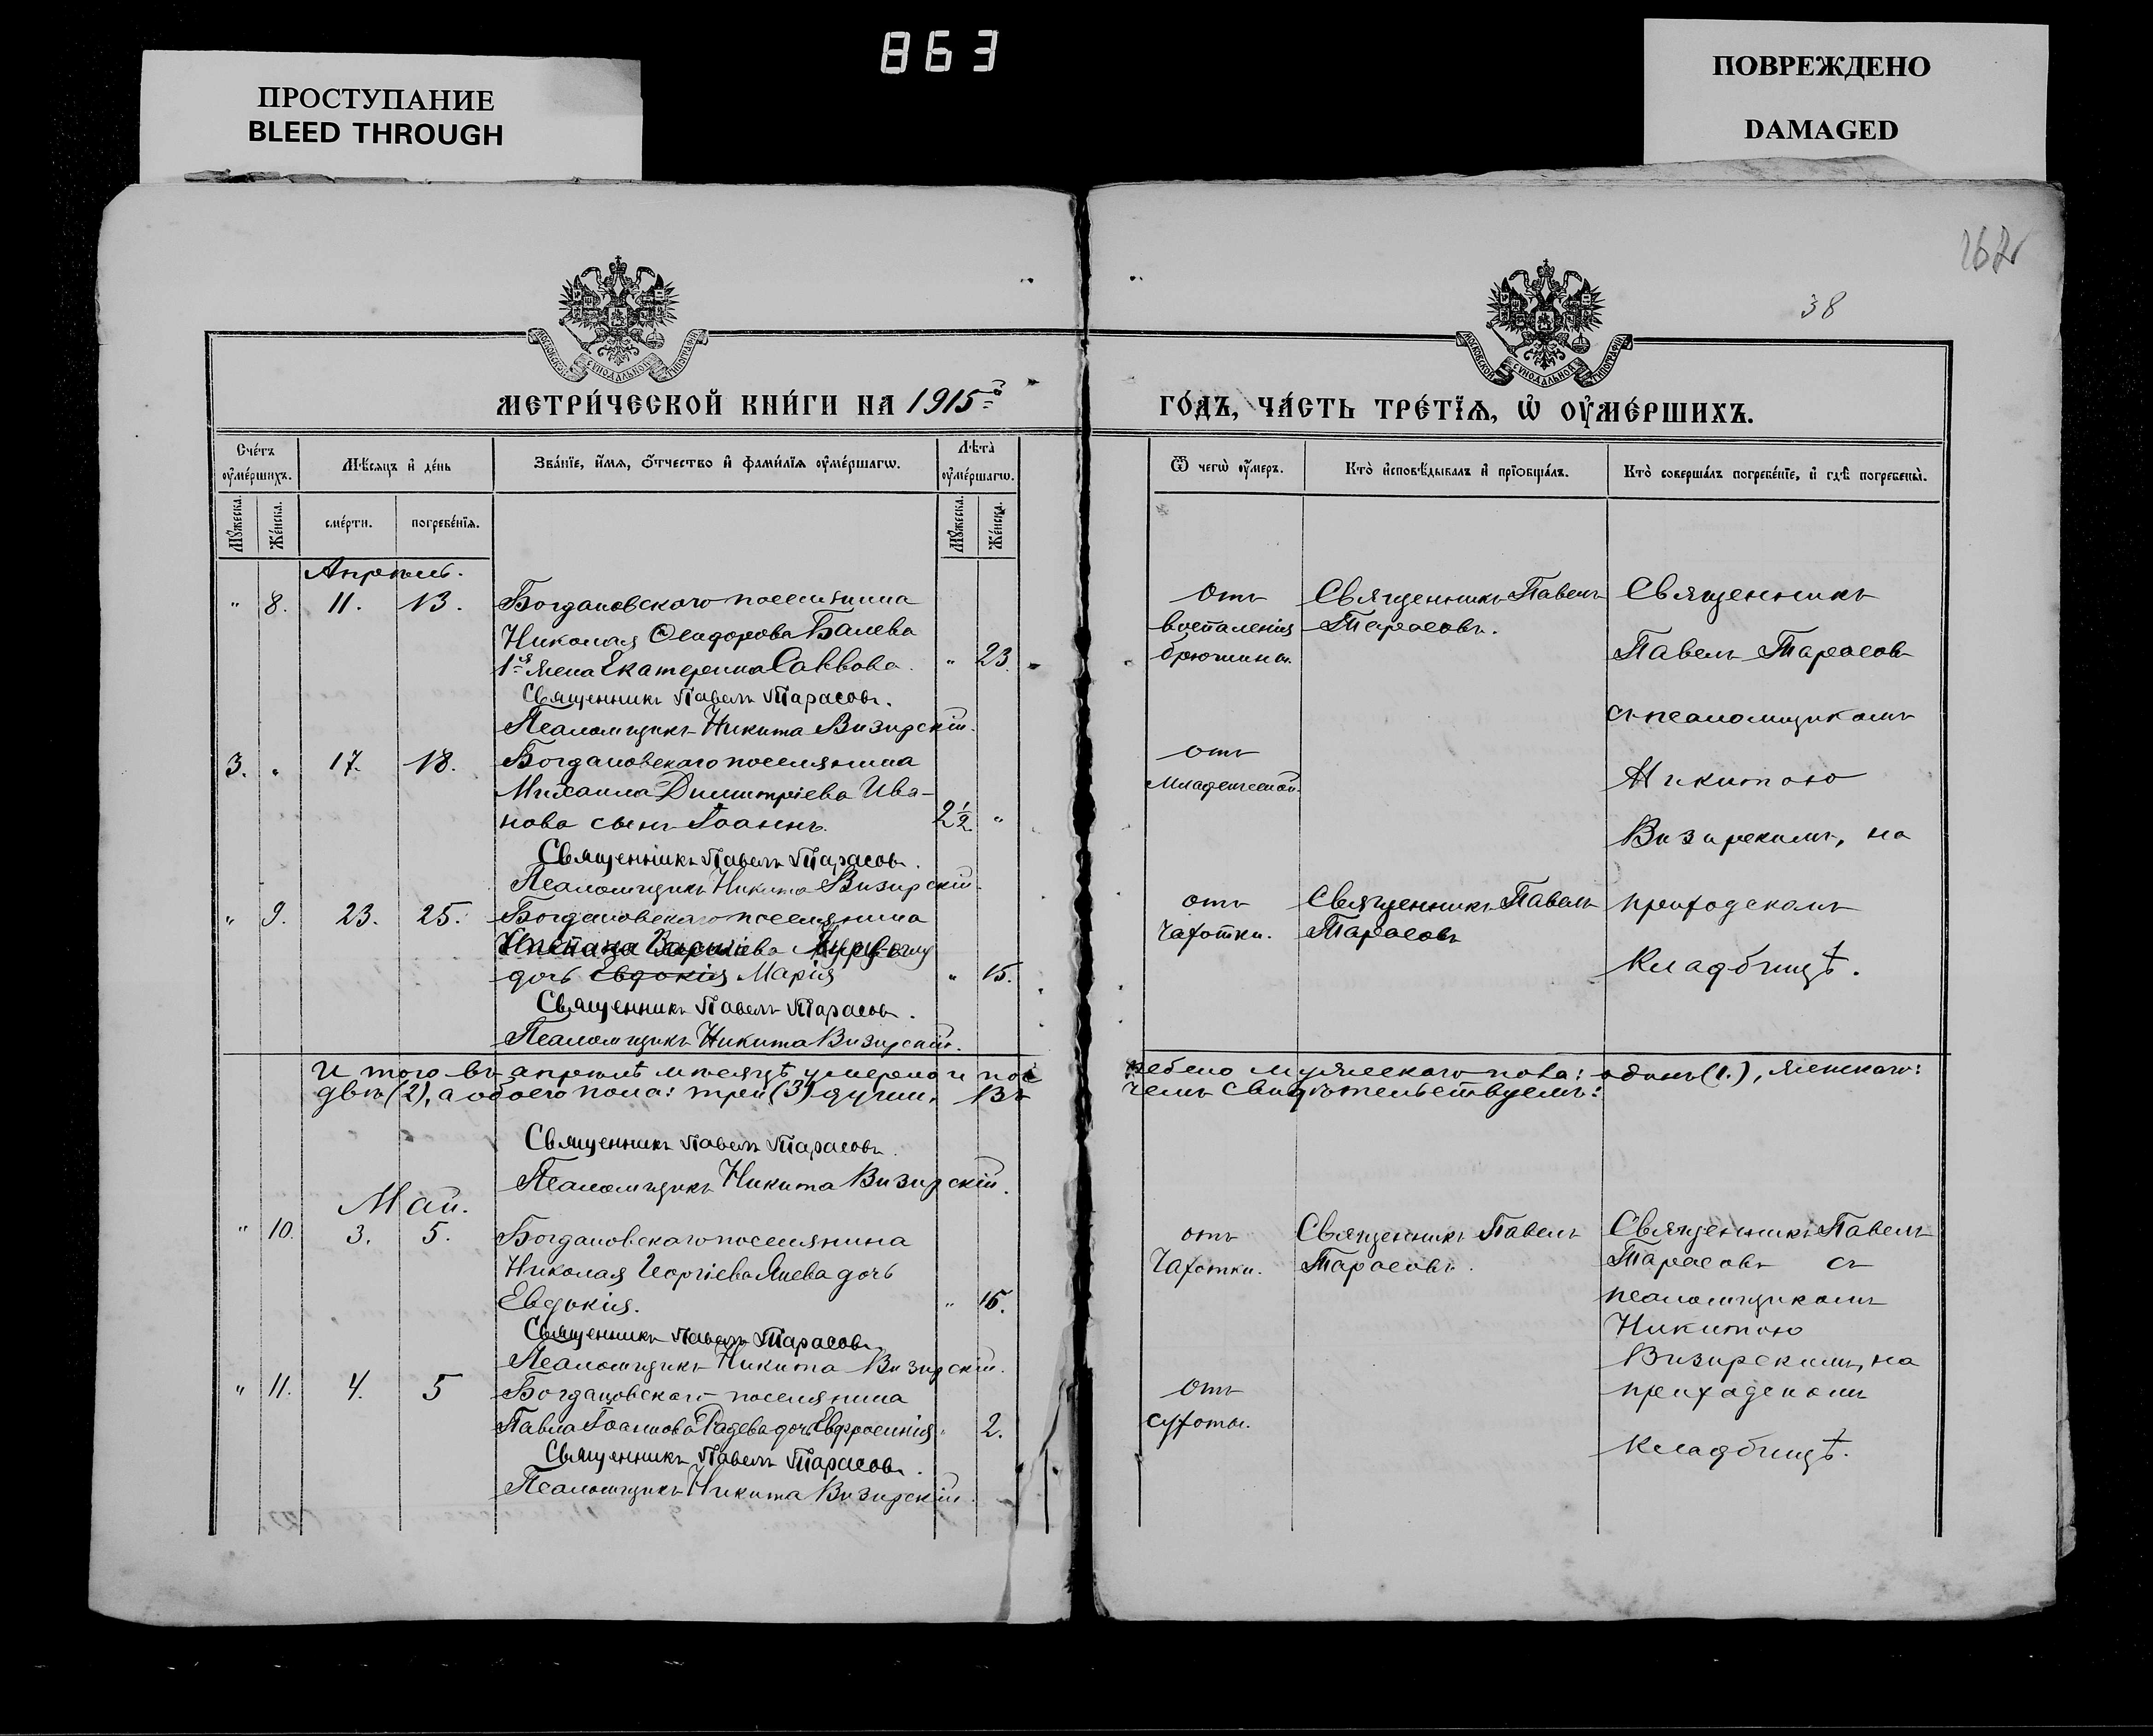 863
ПРОСТУПАНИЕ
BLEED THROUGH
ПОВРЕЖДЕНО
DAMAGED
38
МОСКОВСКОЙ СѴНОДАЛЬНОЙ ТИПОГРАФІИ
МОСКОВСКОЙ СѴНОДАЛЬНОЙ ТИПОГРАФІИ
МЕТРИ́ЧЕСКОЙ КНИ́ГИ НА 1915
ГО́ДЪ, ЧА́СТЬ ТРЕ́ТЇѦ, Ѡ҆ ОУ҆МЕ́РШИХЪ.
Сче́тъ оу҆ме́ршихъ.
Мѣ́сѧцъ и҆ де́нь
Зва́нїе, и҆́мѧ, ѻ҆́тчество и҆ фами́лїѧ оу҆ме́ршагѡ.
Лѣта̀ оу҆ме́ршагѡ.
Ѿ чегѡ̀ оу҆́меръ.
Кто̀ и҆сповѣ́дывалъ и҆ прїѻбща́лъ.
Кто̀ соверша́лъ погребе́нїе, и҆ гдѣ̀ погребены̀.
Мꙋ́жеска.
Же́нска.
сме́рти.
погребе́нїѧ.
Мꙋ́жеска.
Же́нска.
Апрѣль.
" 8. 11. 13. Богдановского поселянина
Николая Ѳеодорова Балева
1-я жена Екатерина Саввова. " 23.
Священникъ Павелъ Тарасовъ.
Псаломщикъ Никита Визирскій.
отъ
воспаленія
брюшины.
Священникъ Павелъ
Тарасовъ.
Священникъ
Павелъ Тарасовъ
съ псаломщикомъ
Никитою
Визирскимъ, на
приходскомъ
кладбищѣ.
3. " 17. 18. Богдановскаго поселянина
Михаила Димитріева Ива-
нова сынъ Іоаннъ. 2 1/2 "
Священникъ Павелъ Тарасовъ.
Псаломщикъ Никита Визирскій.
отъ
младенческой.
" 9. 23. 25. Богдановскаго поселянина
дочь Евдокія Марія " 15.
Священникъ Павелъ Тарасовъ.
Псаломщикъ Никита Визирскій.
отъ
чахотки.
Священникъ Павелъ
Тарасовъ
И того въ апрѣлѣ мѣсяцѣ умерло и погребено мужескаго пола: одинъ (1.), женскаго:
двѣ (2), а обоего пола: три (3) души. Въ чемъ свидѣтельствуемъ:
Священникъ Павелъ Тарасовъ.
Псаломщикъ Никита Визирскій.
Май.
" 10. 3. 5. Богдановскаго поселянина
Николая Георгіева Янева дочь
Евдокія. " 15.
Священникъ Павелъ Тарасовъ.
Псаломщикъ Никита Визирскій.
отъ
чахотки.
Священникъ Павелъ
Тарасовъ.
Священникъ Павелъ
Тарасовъ съ
псаломщикомъ
Никитою
Визирскимъ, на
приходскомъ
кладбищѣ.
" 11. 4. 5 Богдановского поселянина
Павла Іоаннова Радева дочь Евфросинія " 2.
Священникъ Павелъ Тарасовъ.
Псаломщикъ Никита Визирскій.
отъ
сухоты.